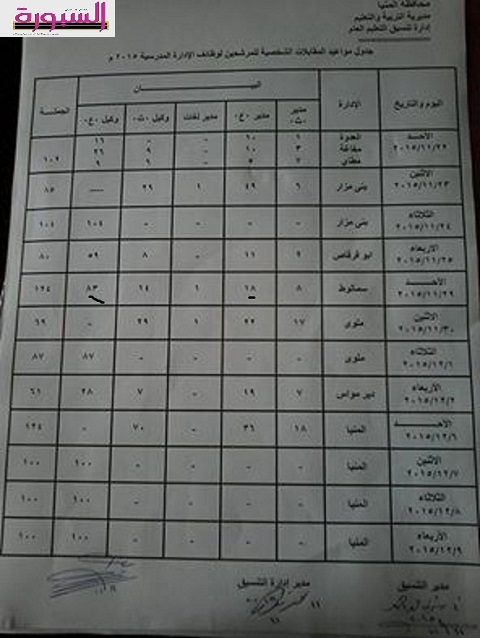 السبورة
محافظة المنيا
مديرية التربية والتعليم
إدارة تنسيق التعليم العام
جدول مواعيد المقابلات الشخصية للمرشحين لوظائف الإدارة المدرسية ٢٠١٥ م
اليوم والتاريخ الإدارة البيــــــــان الجملــة
مدير ث٠ مدير ع٠ مدير لغات وكيل ث٠ وكيل ع٠
الأحــد ٢٠١٥/١١/٢٢ العدوة ١ ١٠ - - ١٦
مغاغة ٣ ١٠ - ٩ ٢٦
مطاي ٧ ٥ - ٩ ١٠٢
الاثنين ٢٠١٥/١١/٢٣ بنى مزار ٦ ٤٩ ١ ٢٩ ---- ٨٥
الثلاثاء ٢٠١٥/١١/٢٤ بنى مزار - - - - ١٠٤ ١٠٤
الأربعاء ٢٠١٥/١١/٢٥ ابو قرقاص ٢ ١١ - ٨ ٥٩ ٨٠
الأحــــد ٢٠١٥/١١/٢٩ سمالوط ٨ ١٨ ١ ١٤ ٨٣ ١٢٤
الاثنين ٢٠١٥/١١/٣٠ ملوى ١٧ ٢٢ ١ ٢٩ - ٦٩
الثلاثاء ٢٠١٥/١٢/١ ملوى - - - - ٨٧ ٨٧
الأربعاء ٢٠١٥/١٢/٢ دير مواس ٧ ١٩ - ٧ ٢٨ ٦١
الأحــــد ٢٠١٥/١٢/٦ المنيا ١٨ ٣٦ - ٧٠ - ١٢٤
الاثنين ٢٠١٥/١٢/٧ المنيا - - - - ١٠٠ ١٠٠
الثلاثاء ٢٠١٥/١٢/٨ المنيا - - - - ١٠٠ ١٠٠
الأربعاء ٢٠١٥/١٢/٩ المنيا - - - - ١٠٠ ١٠٠
مدير التنسيق مدير إدارة التنسيق